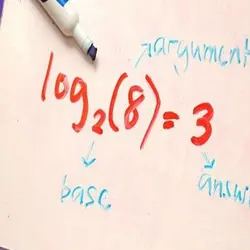 argument
log₂(8) = 3
base answ